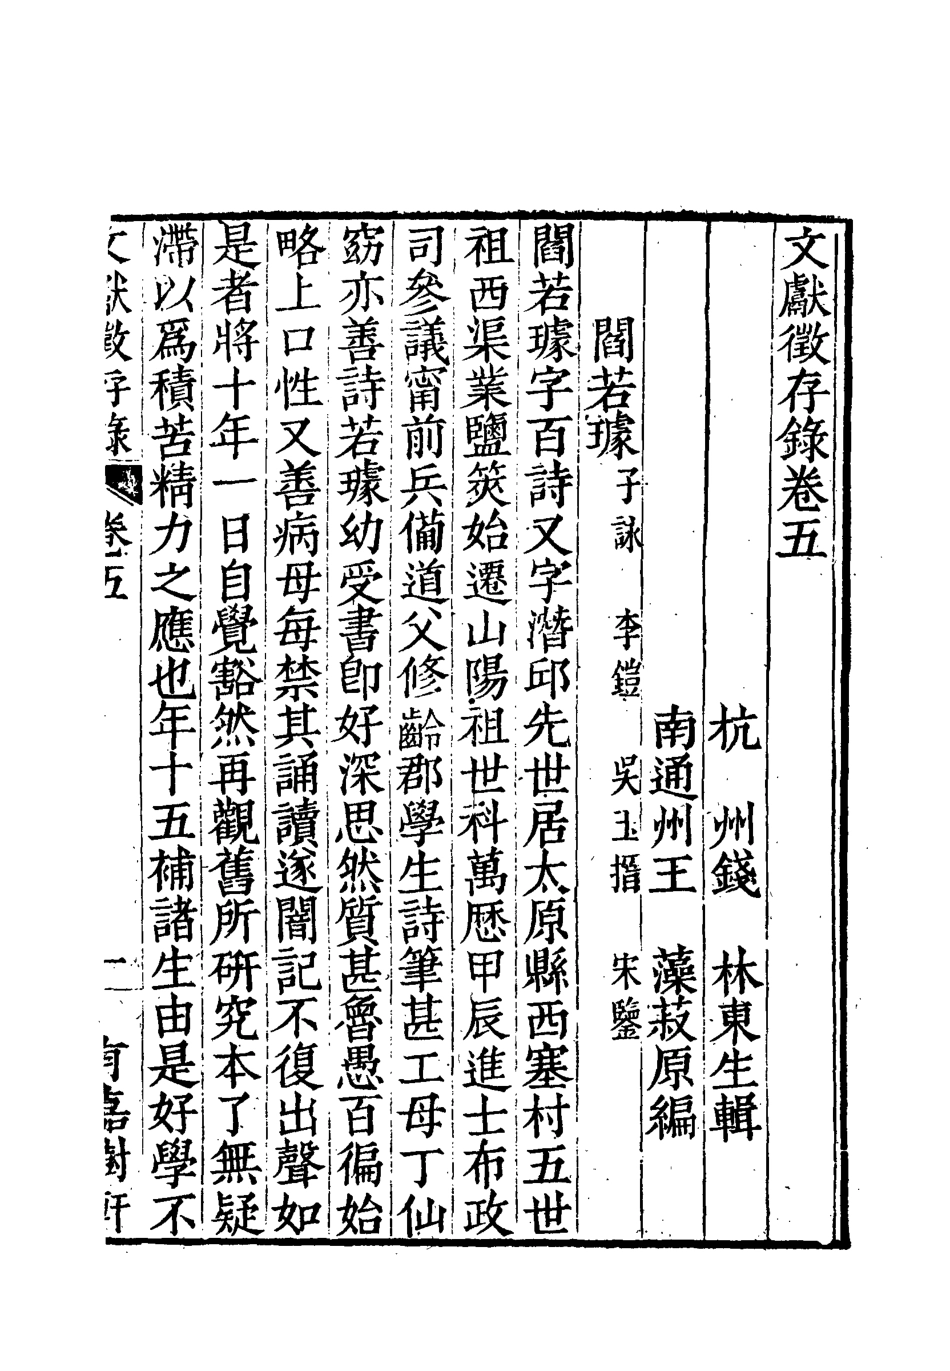 文獻徵存錄卷五
杭　州錢　林東生輯
南通州王　藻菽原編
閻若璩子詠　李鎧　吳玉搢　宋鑒
閻若璩字百詩又字潛邱先世居太原縣西寨村五世
祖西渠業鹽筴始遷山陽祖世科萬厯甲辰進士布政
司參議甯前兵備道父修齡郡學生詩筆甚工母丁仙
窈亦善詩若璩幼受書卽好深思然質甚魯愚百徧始
略上口性又善病母每禁其誦讀遂闇記不復出聲如
是者將十年一日自覺豁然再觀舊所研究本了無疑
滯以爲積苦精力之應也年十五補諸生由是好學不
文獻徵存錄　卷五　一　有嘉樹軒